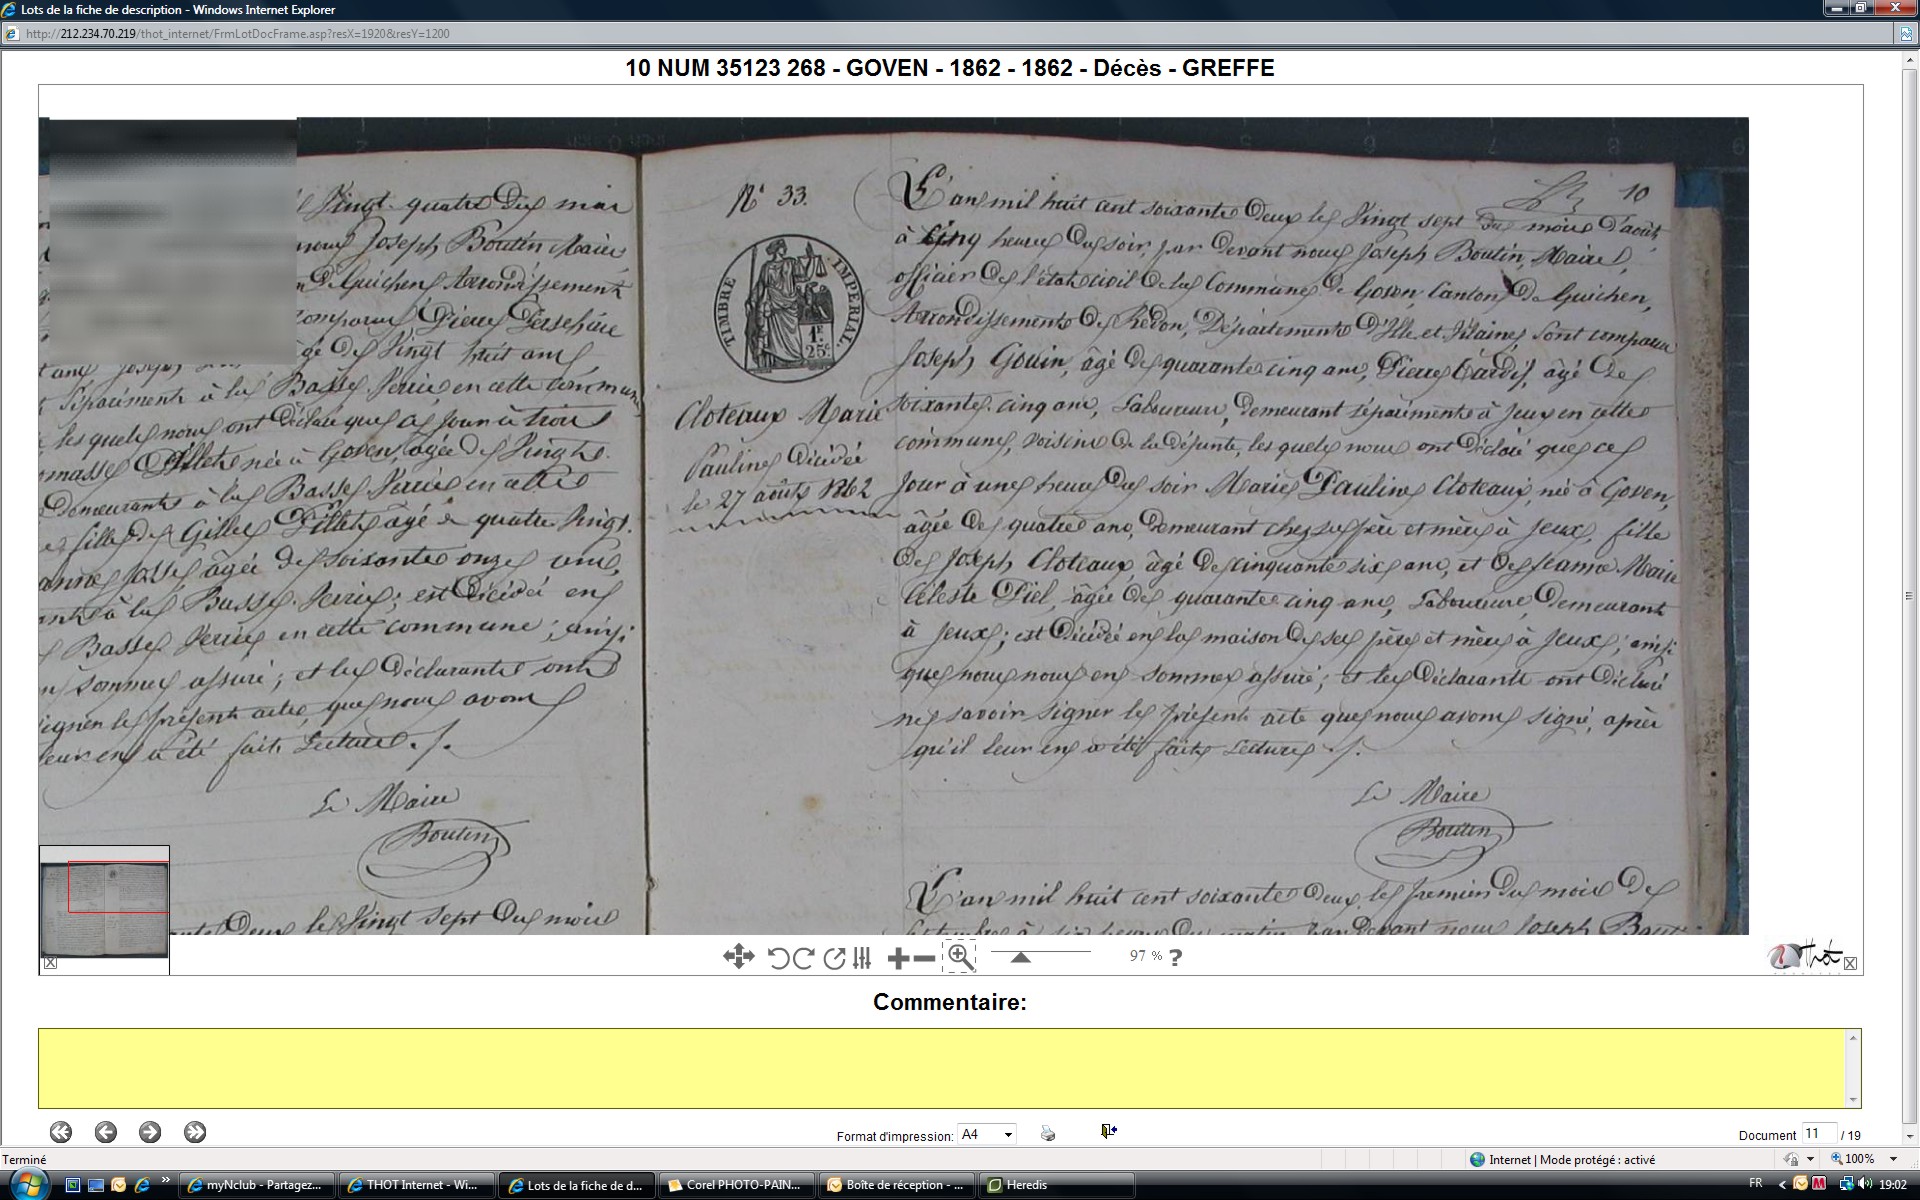 Lots de la fiche de description - Windows Internet Explorer
http://212.234.70.219/thot_internet/FrmLotDocFrame.asp?resX=1920&resY=1200
10 NUM 35123 268 - GOVEN - 1862 - 1862 - Décès - GREFFE
Vingt quatre du mai
Joseph Boutin Maire
de Guichen Arrondissement
comparu Pierre
âgé de Vingt huit ans,
séparément à la Basse Verrie en cette commune
les quels nous ont déclaré que ce jour à trois
née à Goven, âgée de Vingt
Demeurante à la Basse Verrie en cette
fille de Gilles Pillet âgé de quatre Vingt
âgée de soixante onze ans,
à la Basse Verrie; est décédé en
Basse Verrie en cette commune; ainsi
sommes assuré; et les déclarants ont
signer le présent acte, que nous avons
leur en a été fait Lecture ./.
Le Maire
Boutin
Deux le Vingt sept du mois
N° 33.
TIMBRE IMPERIAL.
1F
25c
Cloteaux Marie
Pauline décédée
le 27 août 1862
10
L'an mil huit cent soixante Deux le Vingt sept du mois d'août,
à cinq heures du soir, par devant nous Joseph Boutin, Maire,
officier de l'état civil de la Commune de Goven Canton de Guichen,
Arrondissement de Redon, Département d'Ille et Vilaine, sont comparu
Joseph Gouin, âgé de quarante cinq ans, Pierre Tardif, âgé de
soixante cinq ans, Laboureurs, demeurant séparément à Jeux en cette
commune, voisins de la défunte, les quels nous ont déclaré que ce
jour à une heure du soir Marie Pauline Cloteaux, née à Goven,
âgée de quatre ans, demeurant chez ses père et mère à Jeux, fille
de Joseph Cloteaux, âgé de cinquante six ans, et de Jeanne Marie
Céleste Piel, âgée de quarante cinq ans, Laboureurs, demeurant
à Jeux; est décédée en la maison de ses père et mère à Jeux; ainsi
que nous nous en sommes assuré; et les déclarants ont déclaré
ne savoir signer le présent acte que nous avons signé, après
qu'il leur en a été faite Lecture ./.
Le Maire
Boutin
L'an mil huit cent soixante Deux, le premier du mois de
Septembre à six heures du matin par devant nous Joseph Boutin
97 %
?
Thot
Commentaire:
Format d'impression: A4
Document 11 / 19
Terminé
Internet | Mode protégé : activé
100%
myNclub - Partagez...
THOT Internet - Wi...
Lots de la fiche de d...
Corel PHOTO-PAIN...
Boîte de réception - ...
Heredis
FR
19:02